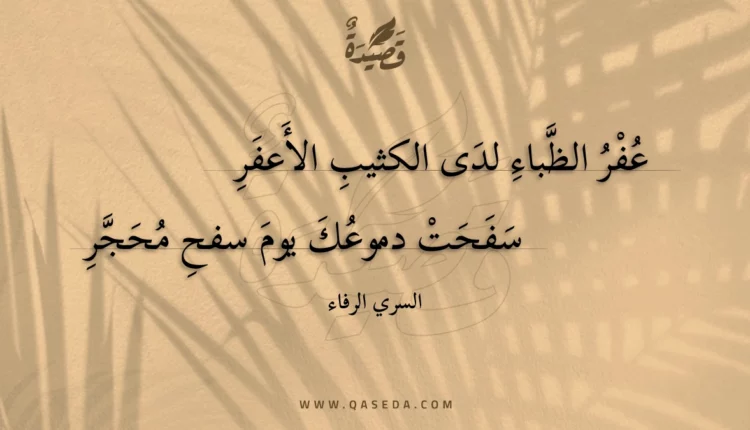 قَصِيْدَةٌ
عُفْرُ الظَّباءِ لدَى الكثيبِ الأَعفَرِ
سَفَحَتْ دموعُكَ يومَ سفحِ مُحَجَّرِ
السري الرفاء
WWW.QASEDA.COM